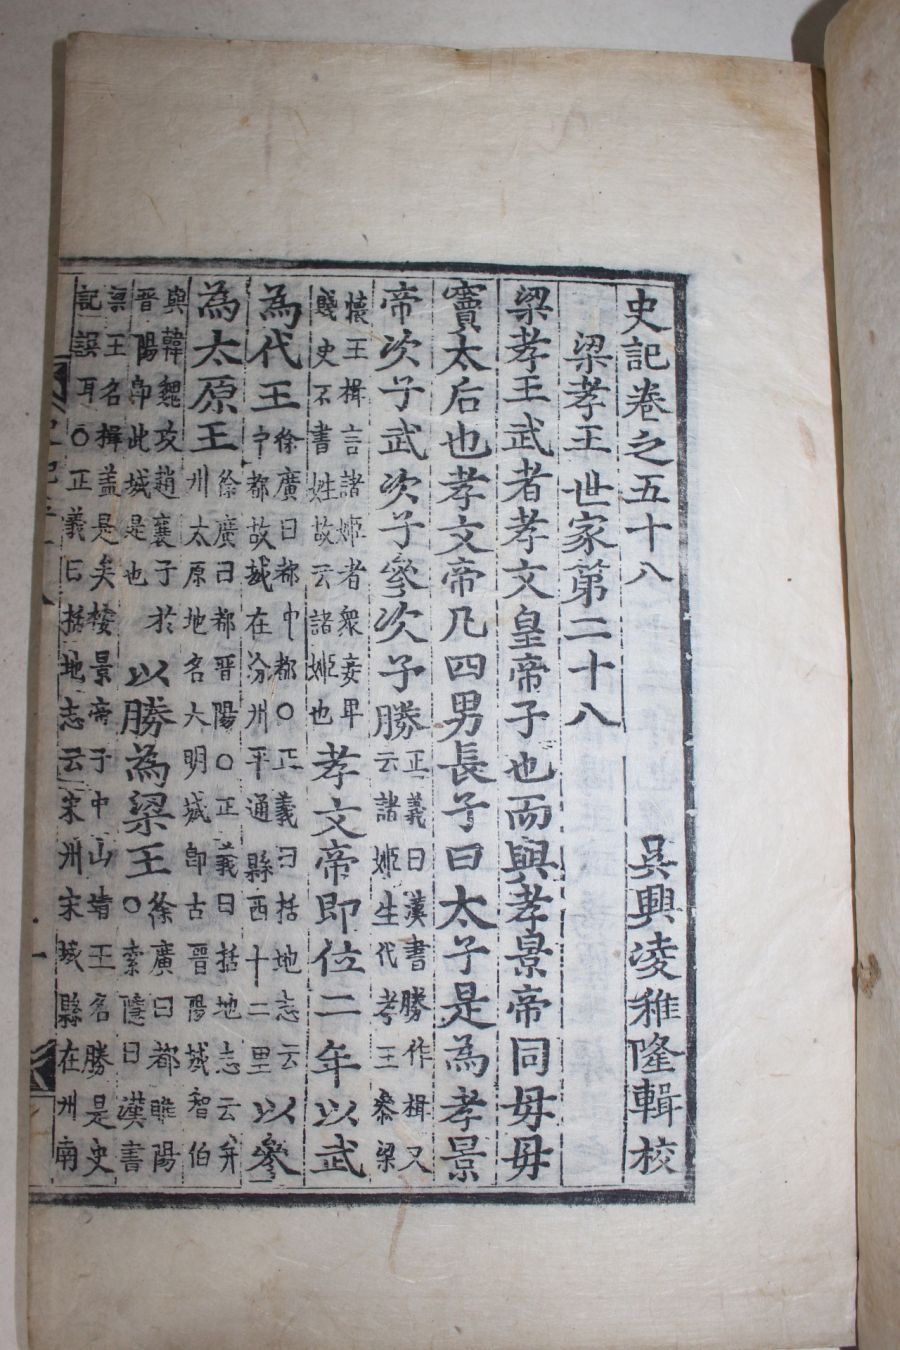 史記卷之五十八　吳興凌稚隆輯校
梁孝王世家第二十八
梁孝王武者孝文皇帝子也而與孝景帝同母母
竇太后也孝文帝凡四男長子曰太子是為孝景
帝次子武次子參次子勝正義曰漢書勝作楫又云諸姬生代孝王參梁
懷王楫言諸姬者衆妾卑賤史不書姓故云諸姬也孝文帝即位二年以武
為代王徐廣曰都中都○正義曰括地志云中都故城在汾州平通縣西十二里以參
為太原王徐廣曰都晉陽○正義曰括地志云并州太原地名大明城即古晉陽城智伯
與韓魏攻趙襄子於晉陽即此城是也以勝為梁王徐廣曰都睢陽○索隱曰漢書
梁王名楫蓋是矣按景帝子中山靖王名勝是史記誤耳○正義曰括地志云宋州宋城縣在州南